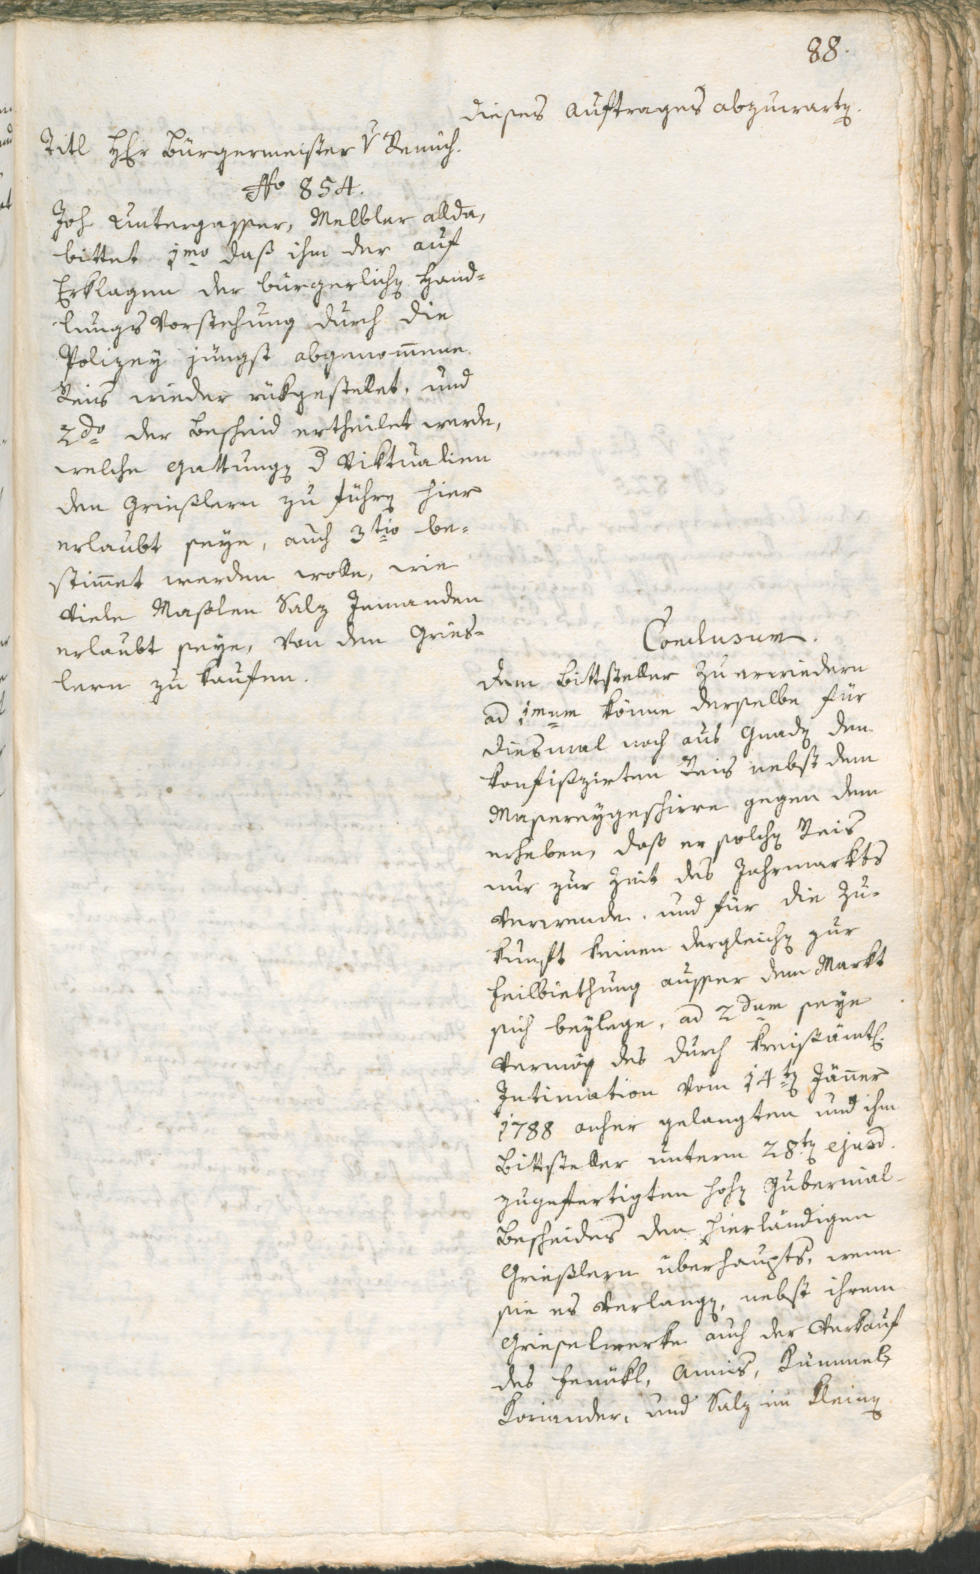 88.
dieses Auftrages abzuwartē.
Titl HEr Bürgermeister v
No 854.
Joh Untergasser, Melbler allda,
bittet 1mo daß ihm der auf
Erklagen der bürgerlichē Hand-
lungs Vorstehung durch die
Polizey jüngst abgenommene
Reis wieder rükgestellet, und
2do der Bescheid ertheilet werde,
welche Gattungē d Viktualien
den Grießlern zu führē hier
erlaubt seye, auch 3tio be-
stimmet werden wolle, wie
viele Maßlen Salz Jemanden
erlaubt seye, von den Gries-
lern zu kaufen.
Conclusum.
Dem Bittsteller zu erwiedern
ad 1mum könne derselbe für
diesmal noch aus Gnadē den
konfiszirten Reis nebst dem
Massereygeschirre gegen dem
erheben, daß er solchē Reis
nur zur Zeit des Jahrmarkts
verwende, und für die Zu-
kunft keinen dergleichē zur
Feilbiethung ausser dem Markt
sich beylege, ad 2dum seye
vermög des durch kreisämtl.
Intimation vom 14tē Jänner
1788 anher gelangten und ihm
Bittsteller unterm 28tē ejusd.
zugefertigten hohē Gubernial-
Bescheides den hierländigen
Grießlern überhaupts, wenn
sie es verlangē, nebst ihrem
Grieselwerke auch der Verkauf
des Fenükl, Annis, Kümmel,
Koriander, und Salz im Kleinē